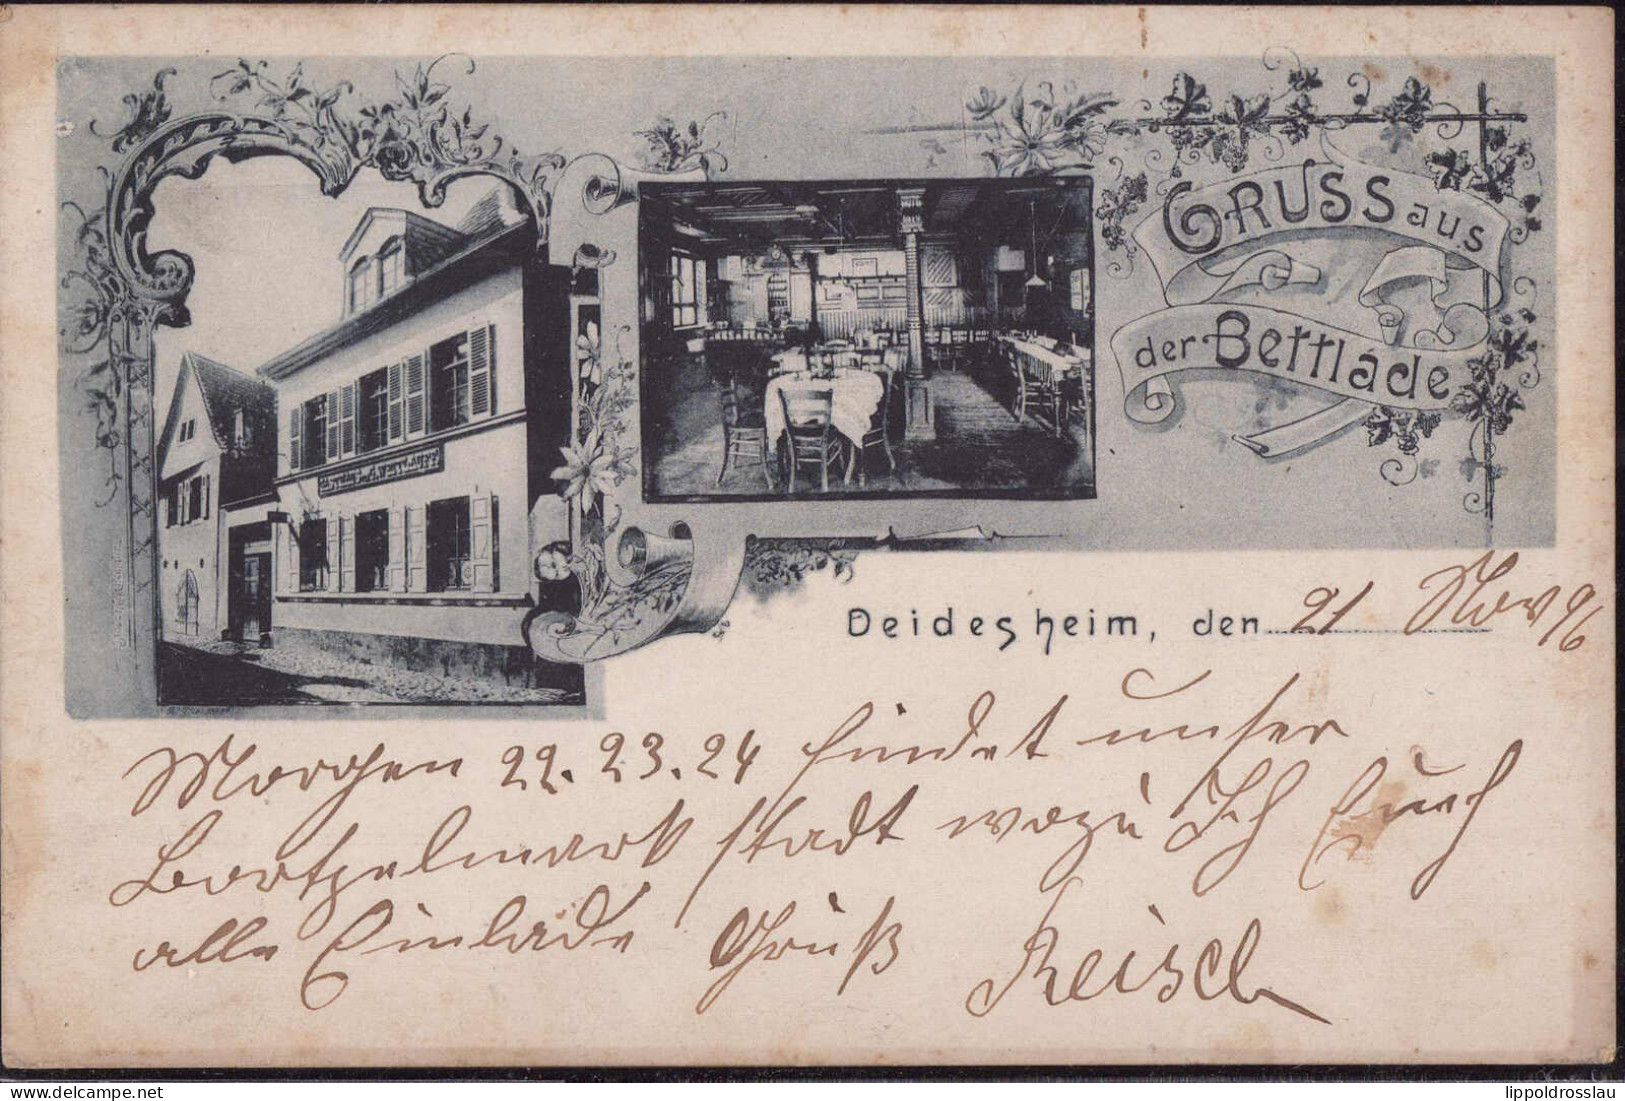 GRUSS aus
der Bettlade
Deidesheim, den 21 Nov 96
Morgen 22. 23. 24 findet unser
statt wozu Ich Euch
alle Einlade Gruß Reisel
Delcampe.net
lippoldrosslau